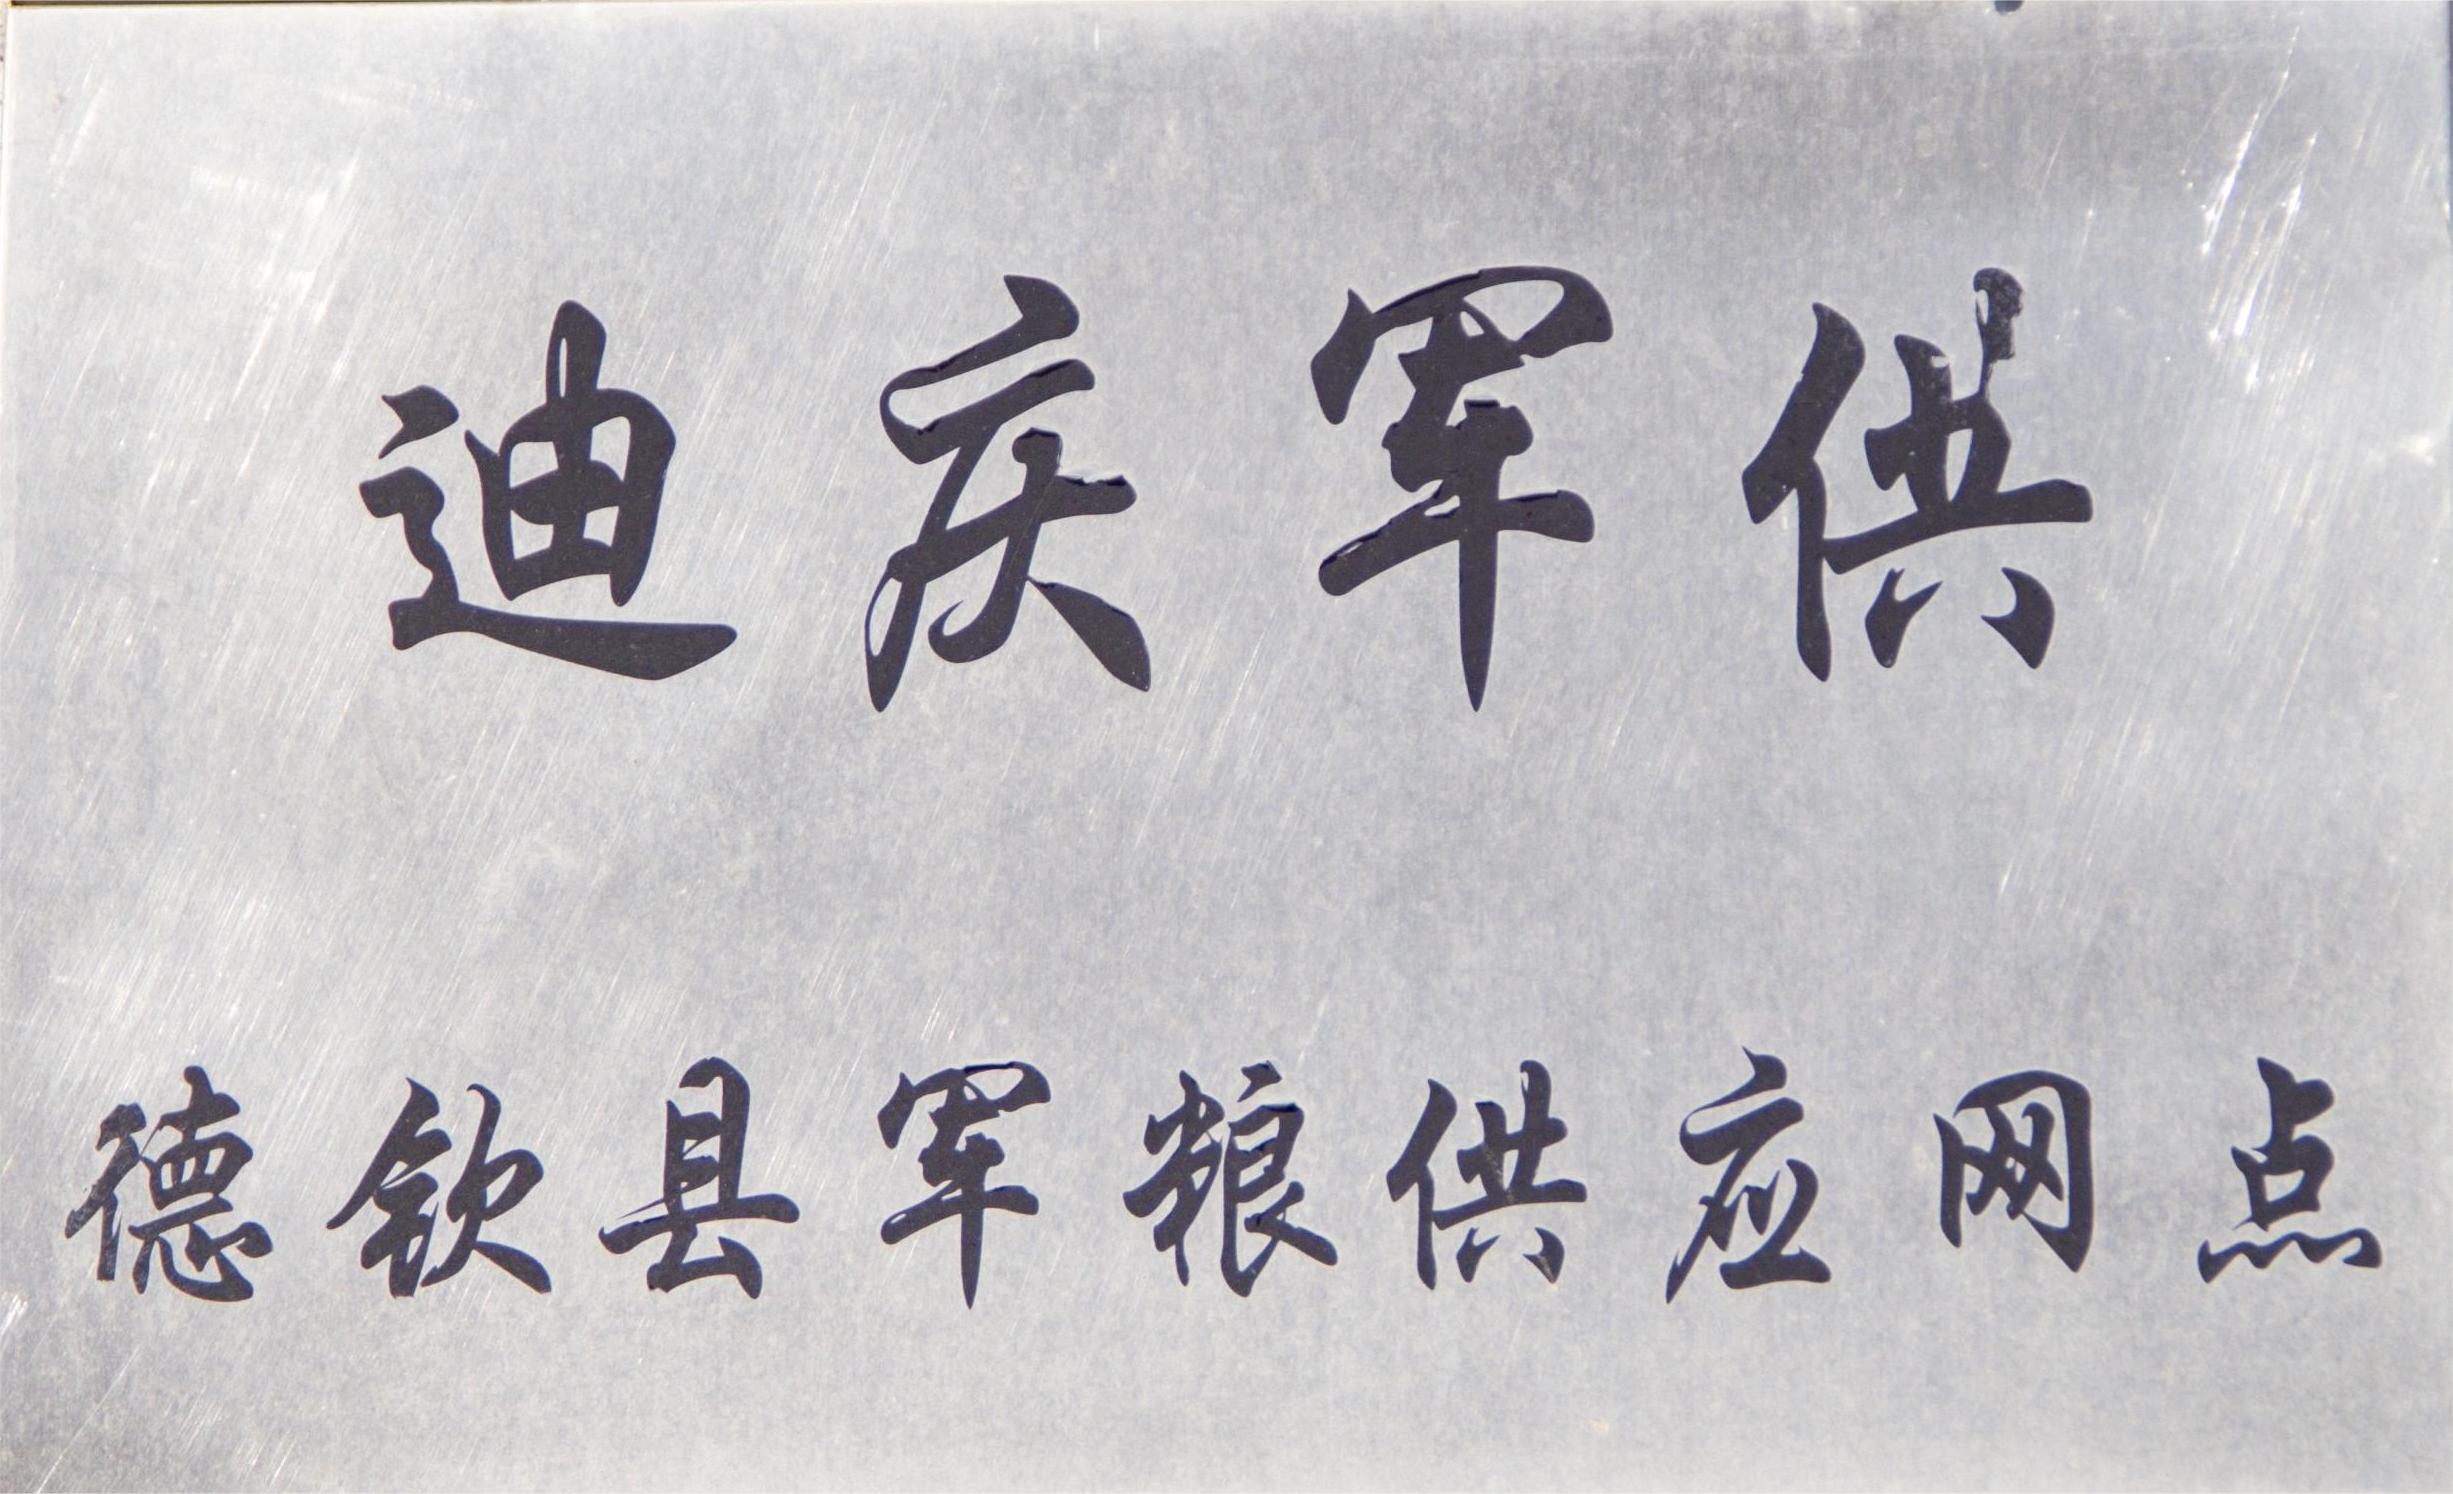 迪庆军供
德钦县军粮供应网点